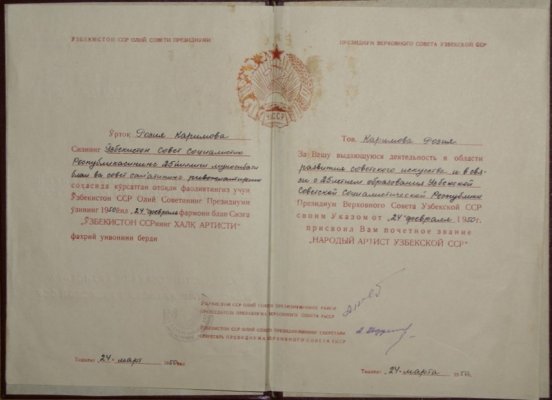 ЎЗБЕКИСТОН ССР ОЛИЙ СОВЕТИ ПРЕЗИДИУМИ
Ўртоқ Розия Каримова
Сизнинг Ўзбекистон Совет Социалистик
Республикасининг 25 йиллиги муносабати
билан ва совет санъатини ривожлантириш
соҳасида кўрсатган фаолиятингиз учун
Ўзбекистон ССР Олий Советининг Президиуми
ўзининг 1950 йил 24 февраль фармони блан Сизга
„ЎЗБЕКИСТОН ССРнинг ХАЛҚ АРТИСТИ"
фахрий унвонини берди
Тошкент 24 - март 1950
ПРЕЗИДИУМ ВЕРХОВНОГО СОВЕТА УЗБЕКСКОЙ ССР
Тов. Каримова Розия
За Вашу выдающуюся деятельность в области
развития советского искусства и в свя-
зи с 25 летием образования Узбекской
Советской Социалистической Республики
Президиум Верховного Совета Узбекской ССР
своим Указом от „24" февраля 1950 г.
присвоил Вам почетное звание
„НАРОДНЫЙ АРТИСТ УЗБЕКСКОЙ ССР"
ЎЗБЕКИСТОН ССР ОЛИЙ СОВЕТИ ПРЕЗИДИУМИНИНГ РАИСИ
ПРЕДСЕДАТЕЛЬ ПРЕЗИДИУМА ВЕРХОВНОГО СОВЕТА УзССР
ЎЗБЕКИСТОН ССР ОЛИЙ СОВЕТИ ПРЕЗИДИУМИНИНГ СЕКРЕТАРИ
СЕКРЕТАРЬ ПРЕЗИДИУМА ВЕРХОВНОГО СОВЕТА УзССР
Ташкент „24" марта 1950